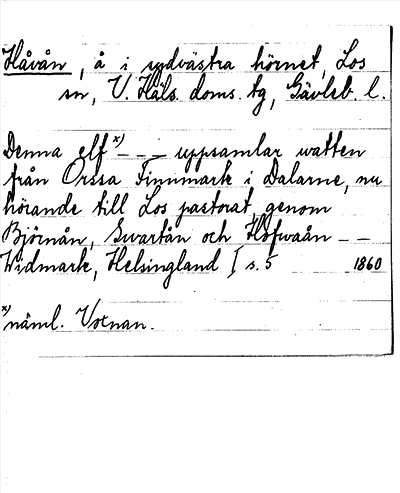 Håvån, å i sydvästra hörnet, Los
sn, V. Häls. doms. tg, Gävleb. l.
Denna elf x) – – uppsamlar watten
från Orssa Finnmark i Dalarne, nu
hörande till Los pastorat genom
Björnån, Swartån och Håfwaån – –
Widmark, Helsingland I s. 5 1860
x) näml. Voxnan.